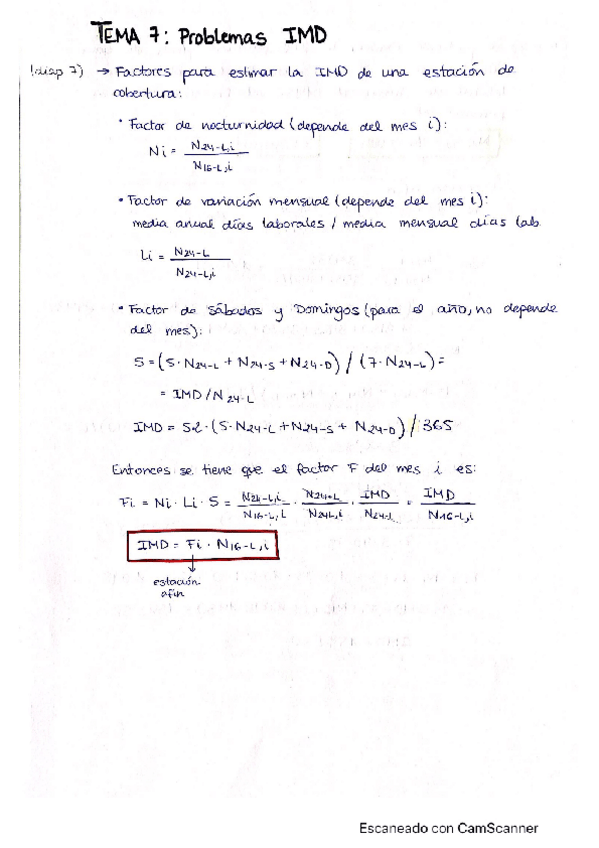 TEMA 7: Problemas IMD
(diap 7) → Factores para estimar la IMD de una estación de
cobertura:
• Factor de nocturnidad (depende del mes i):
Ni = N24-L,i / N16-L,i
• Factor de variación mensual (depende del mes i):
media anual días laborales / media mensual días lab.
Li = N24-L / N24-L,i
• Factor de Sábados y Domingos (para el año, no depende
del mes):
S = (5·N24-L + N24-S + N24-D) / (7·N24-L) =
= IMD / N24-L
IMD = 52·(5·N24-L + N24-S + N24-D) / 365
Entonces se tiene que el factor F del mes i es:
Fi = Ni · Li · S = N24-L,i / N16-L,i · N24-L / N24L,i · IMD / N24-L = IMD / N16-L,i
IMD = Fi · N16-L,i
↓
estación
afín
Escaneado con CamScanner